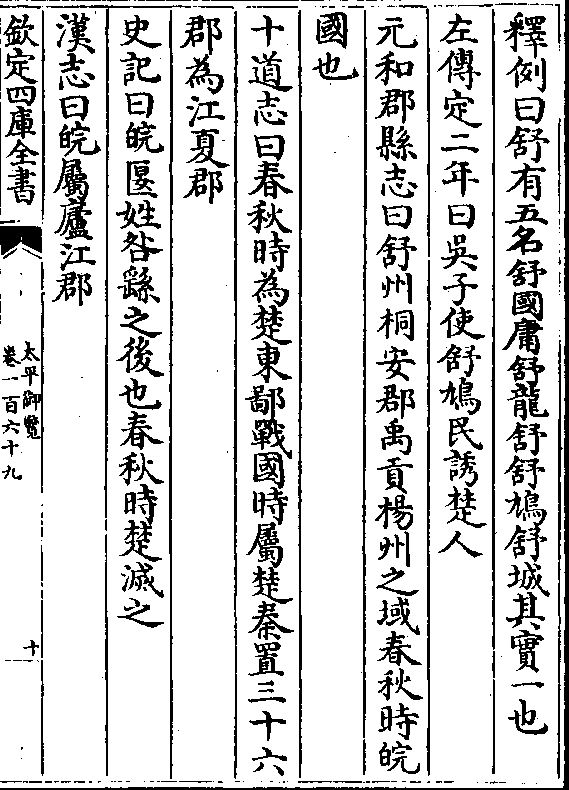 釋例曰舒有五名舒國庸舒龍舒舒鳩舒城其實一也
左傳定二年曰吳子使舒鳩民誘楚人
元和郡縣志曰舒州桐安郡禹貢楊州之域春秋時皖
國也
十道志曰春秋時為楚東鄙戰國時屬楚秦置三十六
郡為江夏郡
史記曰皖偃姓咎繇之後也春秋時楚滅之
漢志曰皖屬廬江郡
欽定四庫全書
太平御覽
卷一百六十九
十